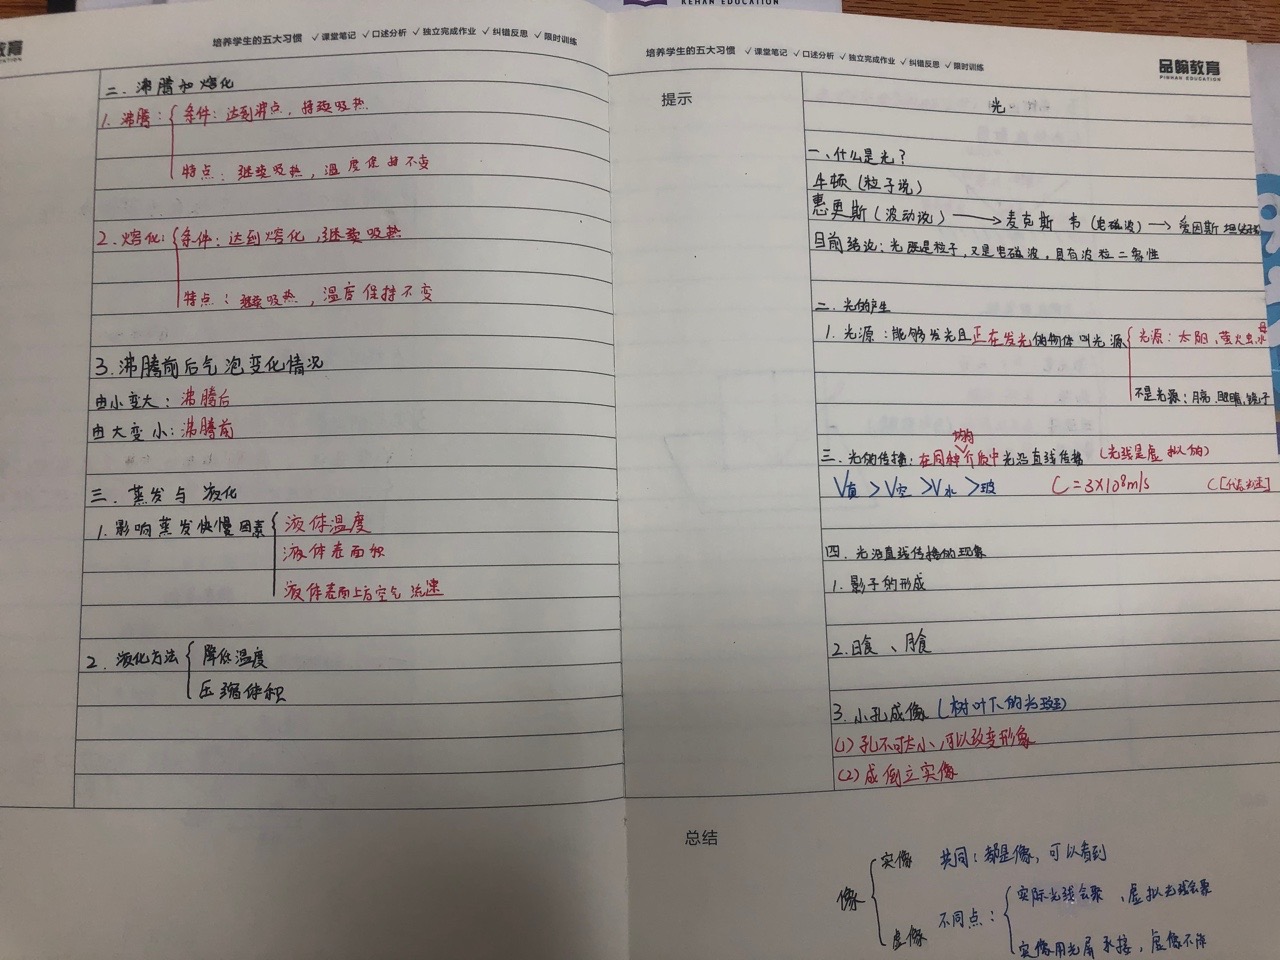 KEHAN EDUCATION
教育
培养学生的五大习惯 ✓课堂笔记 ✓口述分析 ✓独立完成作业 ✓纠错反思 ✓限时训练
二、沸腾和熔化
1. 沸腾: 条件: 达到沸点, 持续吸热
特点: 继续吸热, 温度保持不变
2. 熔化: 条件: 达到熔化, 继续吸热
特点: 继续吸热, 温度保持不变
3. 沸腾前后气泡变化情况
由小变大: 沸腾后
由大变小: 沸腾前
三、蒸发与液化
1. 影响蒸发快慢因素 液体温度
液体表面积
液体表面上方空气流速
2. 液化方法 降低温度
压缩体积
培养学生的五大习惯 ✓课堂笔记 ✓口述分析 ✓独立完成作业 ✓纠错反思 ✓限时训练
品翰教育
PINHAN EDUCATION
提示
光
一、什么是光?
牛顿(粒子说)
惠更斯(波动说) → 麦克斯韦(电磁波) → 爱因斯坦
目前结论: 光既是粒子, 又是电磁波, 具有波粒二象性
二、光的产生
1. 光源: 能够发光且正在发光的物体叫光源 光源: 太阳, 萤火虫
不是光源: 月亮, 眼睛, 镜子
均匀
三、光的传播: 在同种介质中光沿直线传播 (光线是虚拟的)
V真 > V空 > V水 > 玻 C=3×10⁸m/s C[代表光速]
四、光沿直线传播的现象
1. 影子的形成
2. 日食、月食
3. 小孔成像(树叶下的光斑)
(1) 孔不可太小, 可以改变形像
(2) 成倒立实像
总结
像 实像 共同: 都是像, 可以看到
虚像 不同点: 实际光线会聚、虚拟光线会聚
实像用光屏承接, 虚像不你